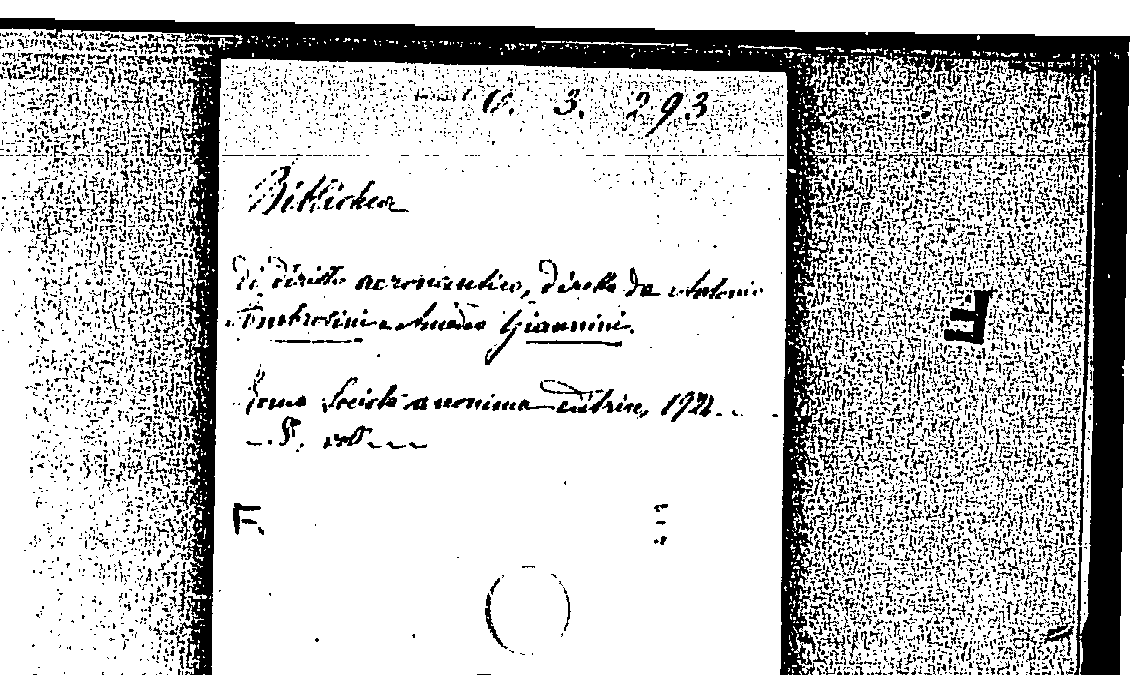 3. 293
Biblioteca
di diritto aeronautico, diretta da Antonio
Ambrosini e Amedeo Giannini.
Roma Società anonima editrice, 192
8°. voll.
F.
E